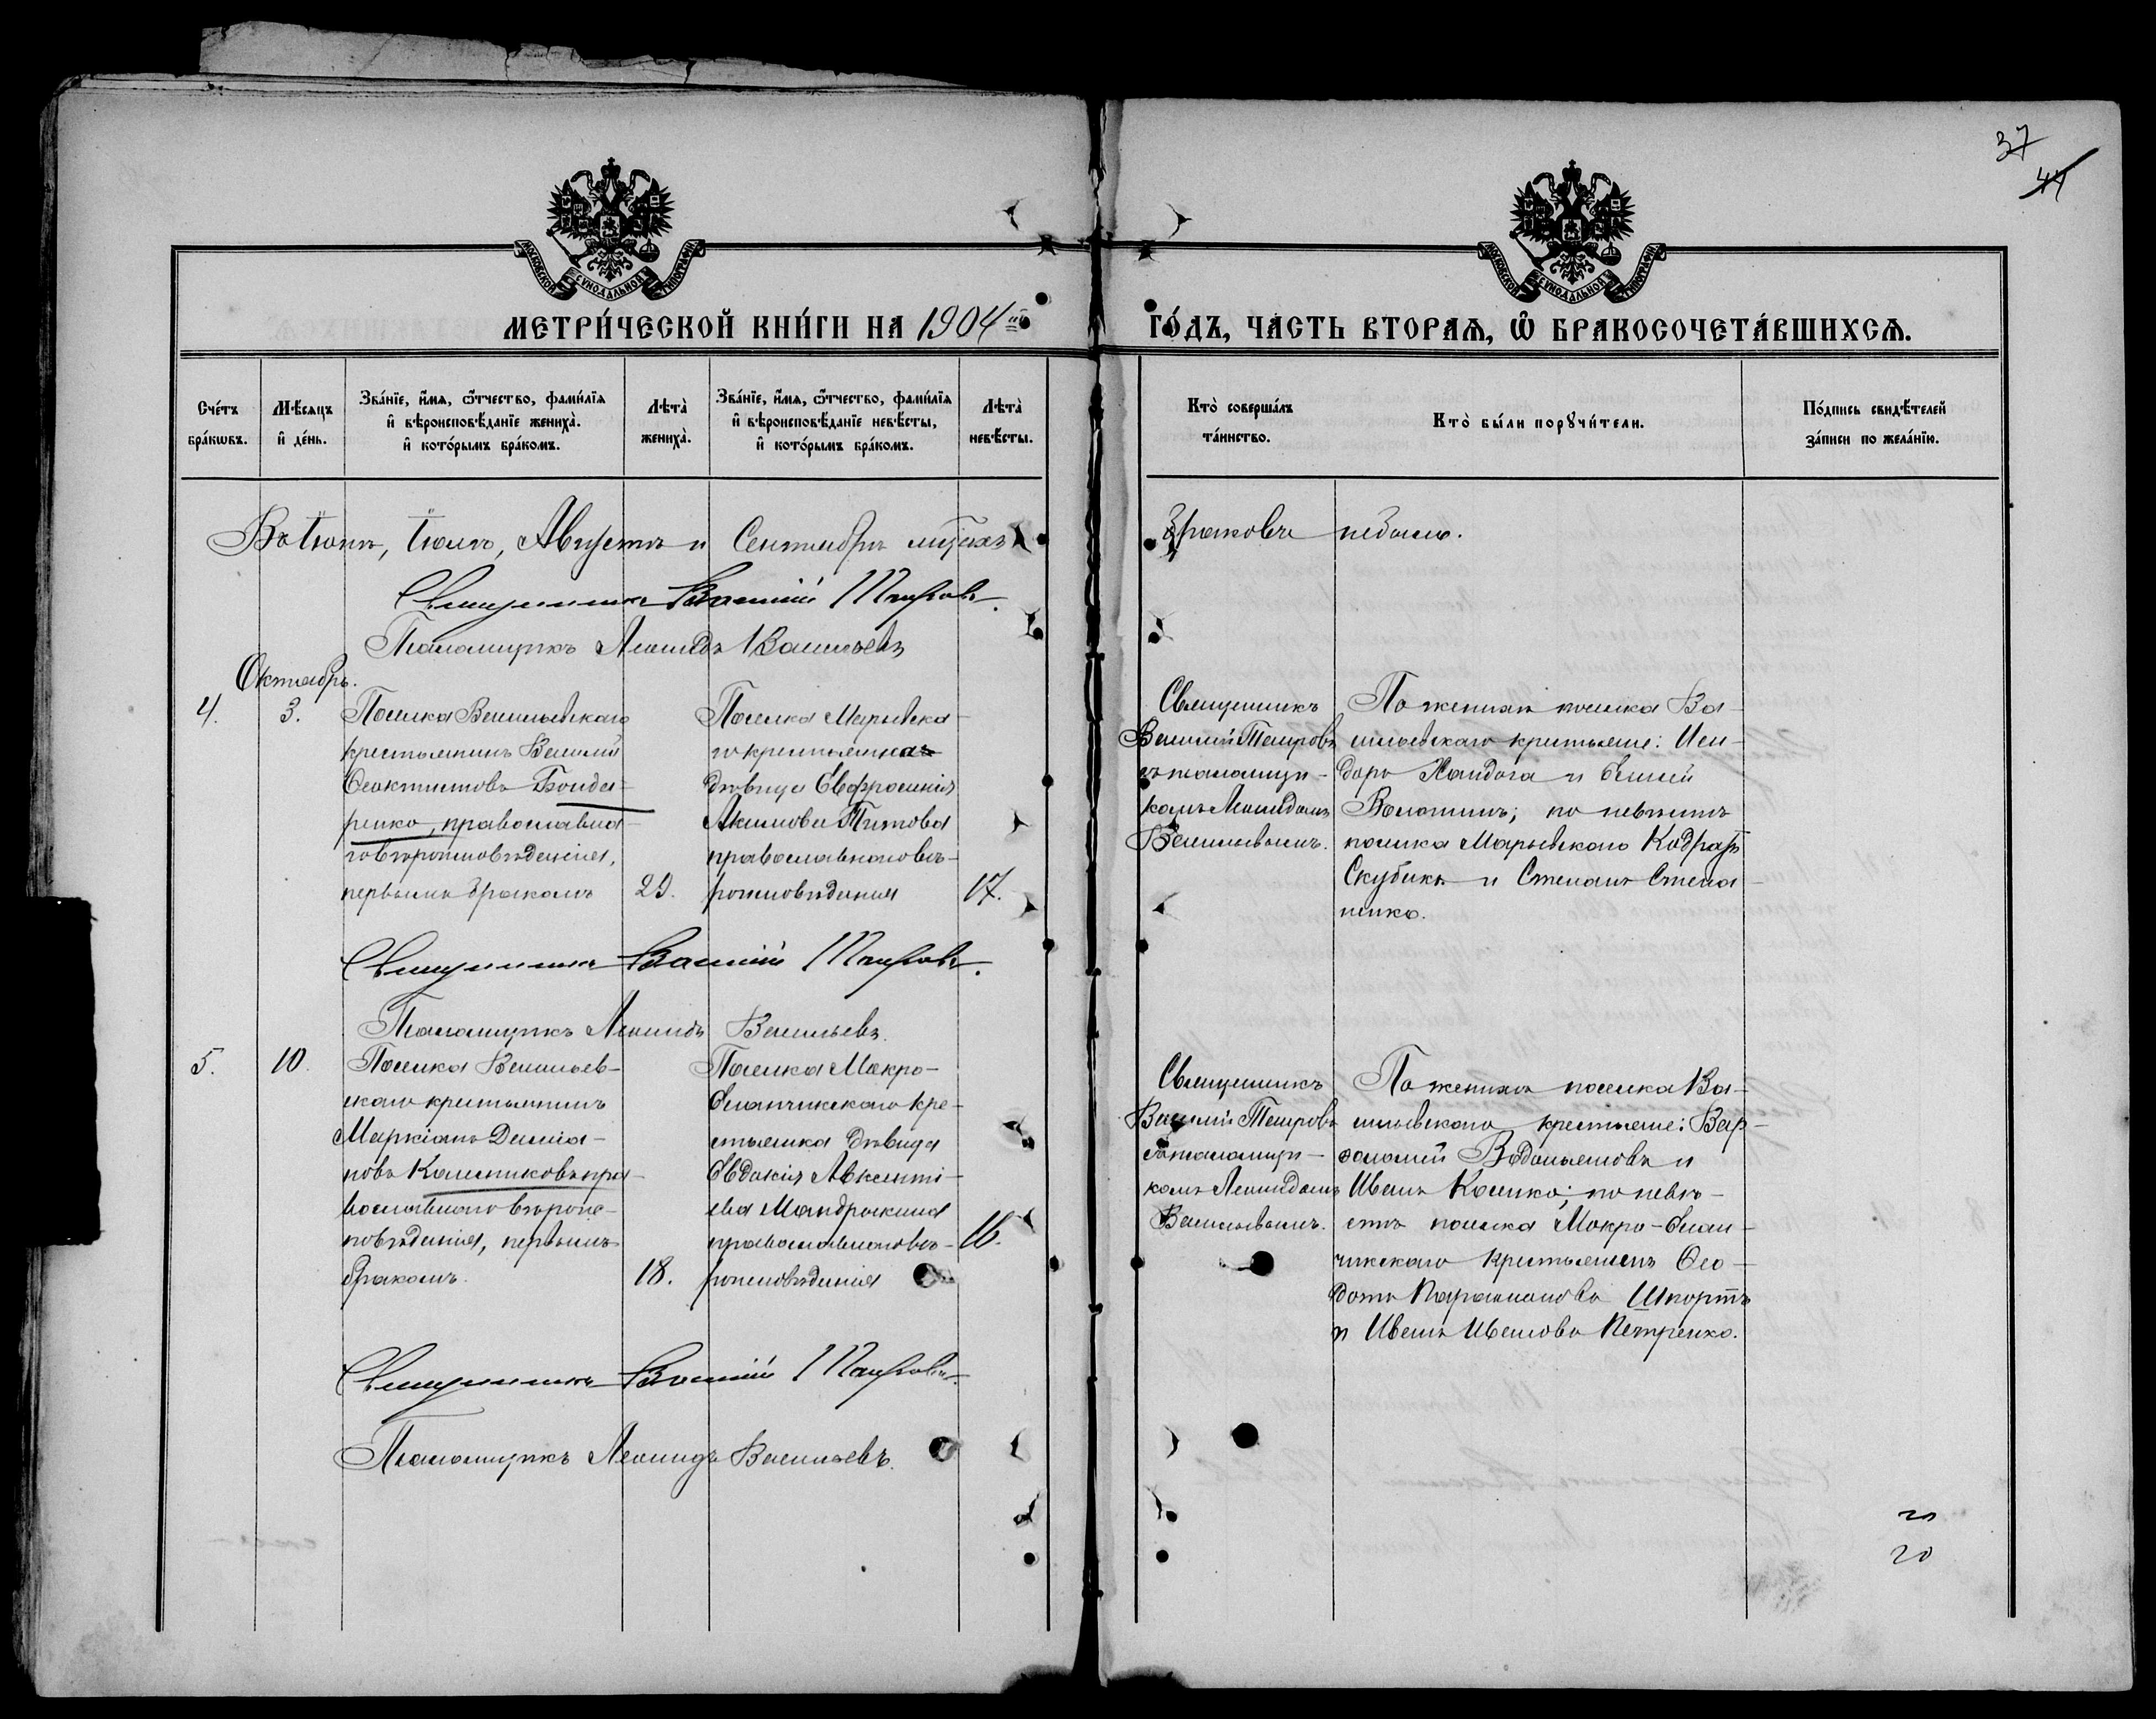 37
44
МОСКОВСКОЙ СѴНОДАЛЬНОЙ ТИПОГРАФІИ
МОСКОВСКОЙ СѴНОДАЛЬНОЙ ТИПОГРАФІИ
МЕТРИ́ЧЕСКОЙ КНИ́ГИ НА 1904 ый ГО́ДЪ, ЧА́СТЬ ВТОРАѦ, Ѽ БРАКОСОЧЕТА́ВШИХСѦ.
Сче́тъ
бра́кѡвъ.
Мѣ́сяцъ
и҆ де́нь.
Зва́нїе, и҆́мѧ, ѻ҆́тчество, фами́лїѧ
и҆ вѣроисповѣ́данїе жениха̀.
и҆ кото́рымъ бра́комъ.
Лѣта̀
жениха̀.
Зва́нїе, и҆́мѧ, ѻ҆́тчество, фами́лїѧ
и҆ вѣроисповѣ́данїе невѣ́сты,
и҆ кото́рымъ бра́комъ.
Лѣта̀
невѣ́сты.
Кто̀ соверша́лъ
та́инство.
Кто̀ бы́ли порꙋчи́тели.
По́дпись свидѣ́телей
за́писи по жела́нїю.
Въ Іюнѣ, Іюлѣ, Августѣ и Сентябрѣ мѣсяцахъ браковъ не было.
Священникъ Василій Таировъ.
Псаломщикъ Леонидъ Васильевъ
Октябрь.
4.
3.
Поселка Васильевскаго
крестьянинъ Василій
Ѳеоктистовъ Бонда-
ренко, православна-
го вѣроисповѣданія,
первымъ бракомъ
23.
Поселка Марьевска-
го крестьянка
дѣвица Евфросинія
Акимова Титова
православнаго вѣ-
роисповѣданія
17.
Священникъ
Василій Таировъ
съ псаломщи-
комъ Леонидомъ
Васильевымъ.
По женихѣ поселка Ва-
сильевскаго крестьяне: Иси-
доръ Хандога и
по невѣстѣ
поселка Марьевскаго Кодратъ
Скубикъ и Степанъ Степа-
ненко.
Священникъ Василій Таировъ.
Псаломщикъ Леонидъ Васильевъ.
5.
10.
Поселка Васильев-
скаго крестьянинъ
Маркіанъ Даміа-
новъ Калашниковъ пра-
вославнаго вѣроис-
повѣданія, первымъ
бракомъ.
18.
Поселка Мокро-
Еланчикскаго кре-
стьянка дѣвица
Евдокія Авксенті-
ева Мандрыкина
православнаго вѣ-
роисповѣданія
16.
Священникъ
Василій Таировъ
съ псаломщи-
комъ Леонидомъ
Васильевымъ.
По женихѣ поселка Ва-
сильевскаго крестьяне: Вар-
ѳоломей Водольяновъ и
Иванъ Косенко; по невѣ-
стѣ поселка Мокро-Елан-
чикскаго крестьянинъ Ѳео-
дотъ Парамоновъ Шпортъ
и Иванъ Ивановъ Петренко.
Священникъ Василій Таировъ.
Псаломщикъ Леонидъ Васильевъ.
20